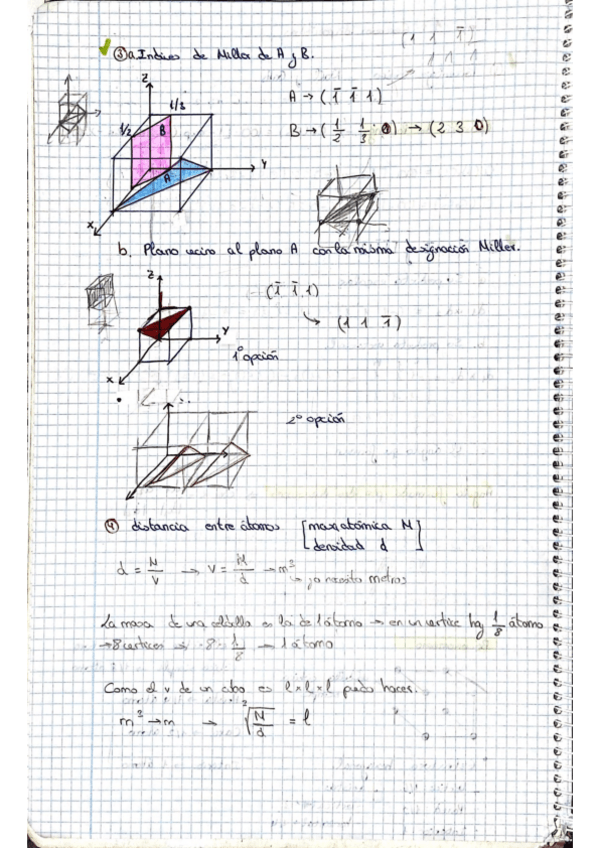 (1 1 1̄)
1 1 1
③ a. Indices de Miller de A y B.
Z
1/3
1/2
B
A
Y
X
A → (1̄ 1̄ 1)
B → (1/2 1/3 0) → (2 3 0)
b. Plano vecino al plano A con la misma designación Miller.
Z
Y
X
(1̄ 1̄ 1)
↳ (1 1 1̄)
1ª opción
2ª opción
④ distancia entre átomos [masa atómica M
densidad d]
d = M/V → V = M/d → m³
↳ yo necesito metros
La masa de una celdilla es la de 1 átomo → en un vertice hay 1/8 átomo
→ 8 vertices 8 · 1/8 → 1 átomo
Como el v de un cubo es l × l × l puedo hacer.
m³ → m → ³√(M/d) = l